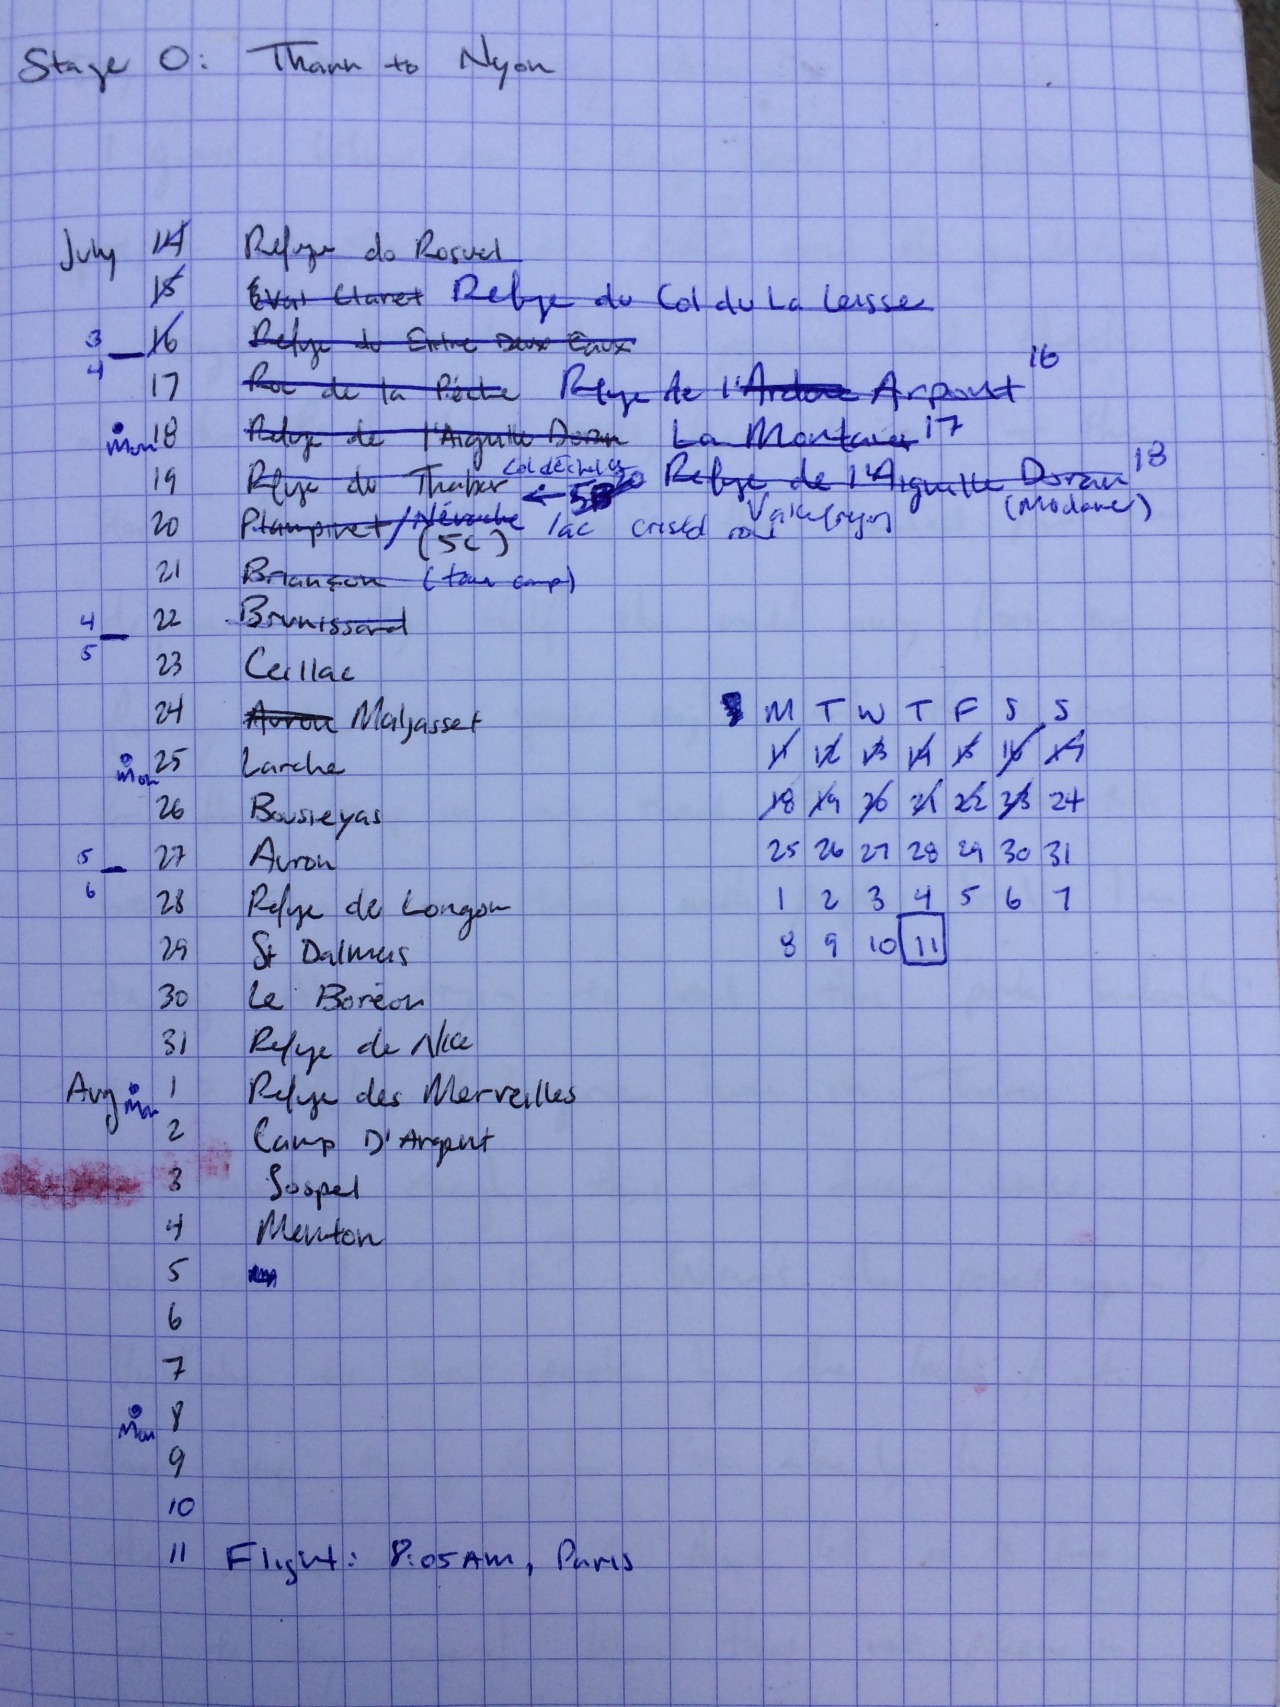 Stage 0: Thann to Nyon
July 14 Refuge do Rosuel
15 Eval Claret Refuge du Col du La Leisse
3
16 Refuge du Entre Deux Eaux
4
17 Roc de la Pêche Refuge de l'Ardove Arpont 16
Mon 18 Refuge de l'Aiguille Doran La Montaier 17
19 Refuge du Thabor ← Refuge de l'Aiguille Doran 18
(Modane)
20 Plampinet/Névache lac
(5C)
21 Briançon (tour comp)
4
22 Brunissard
5
23 Ceillac
24 Auron Maljasset
M T W T F S S
Mon 25 Larche
11 12 13 14 15 16 17
26 Bousieyas
18 19 20 21 22 23 24
5
27 Auron
6
25 26 27 28 29 30 31
28 Refuge de Longon
1 2 3 4 5 6 7
29 St Dalmas
8 9 10 11
30 Le Boréon
31 Refuge de Nice
Aug Mon 1 Refuge des Merveilles
2 Camp D'Argent
3 Sospel
4 Menton
5
6
7
Mon 8
9
10
11 Flight: 8:05AM, Paris